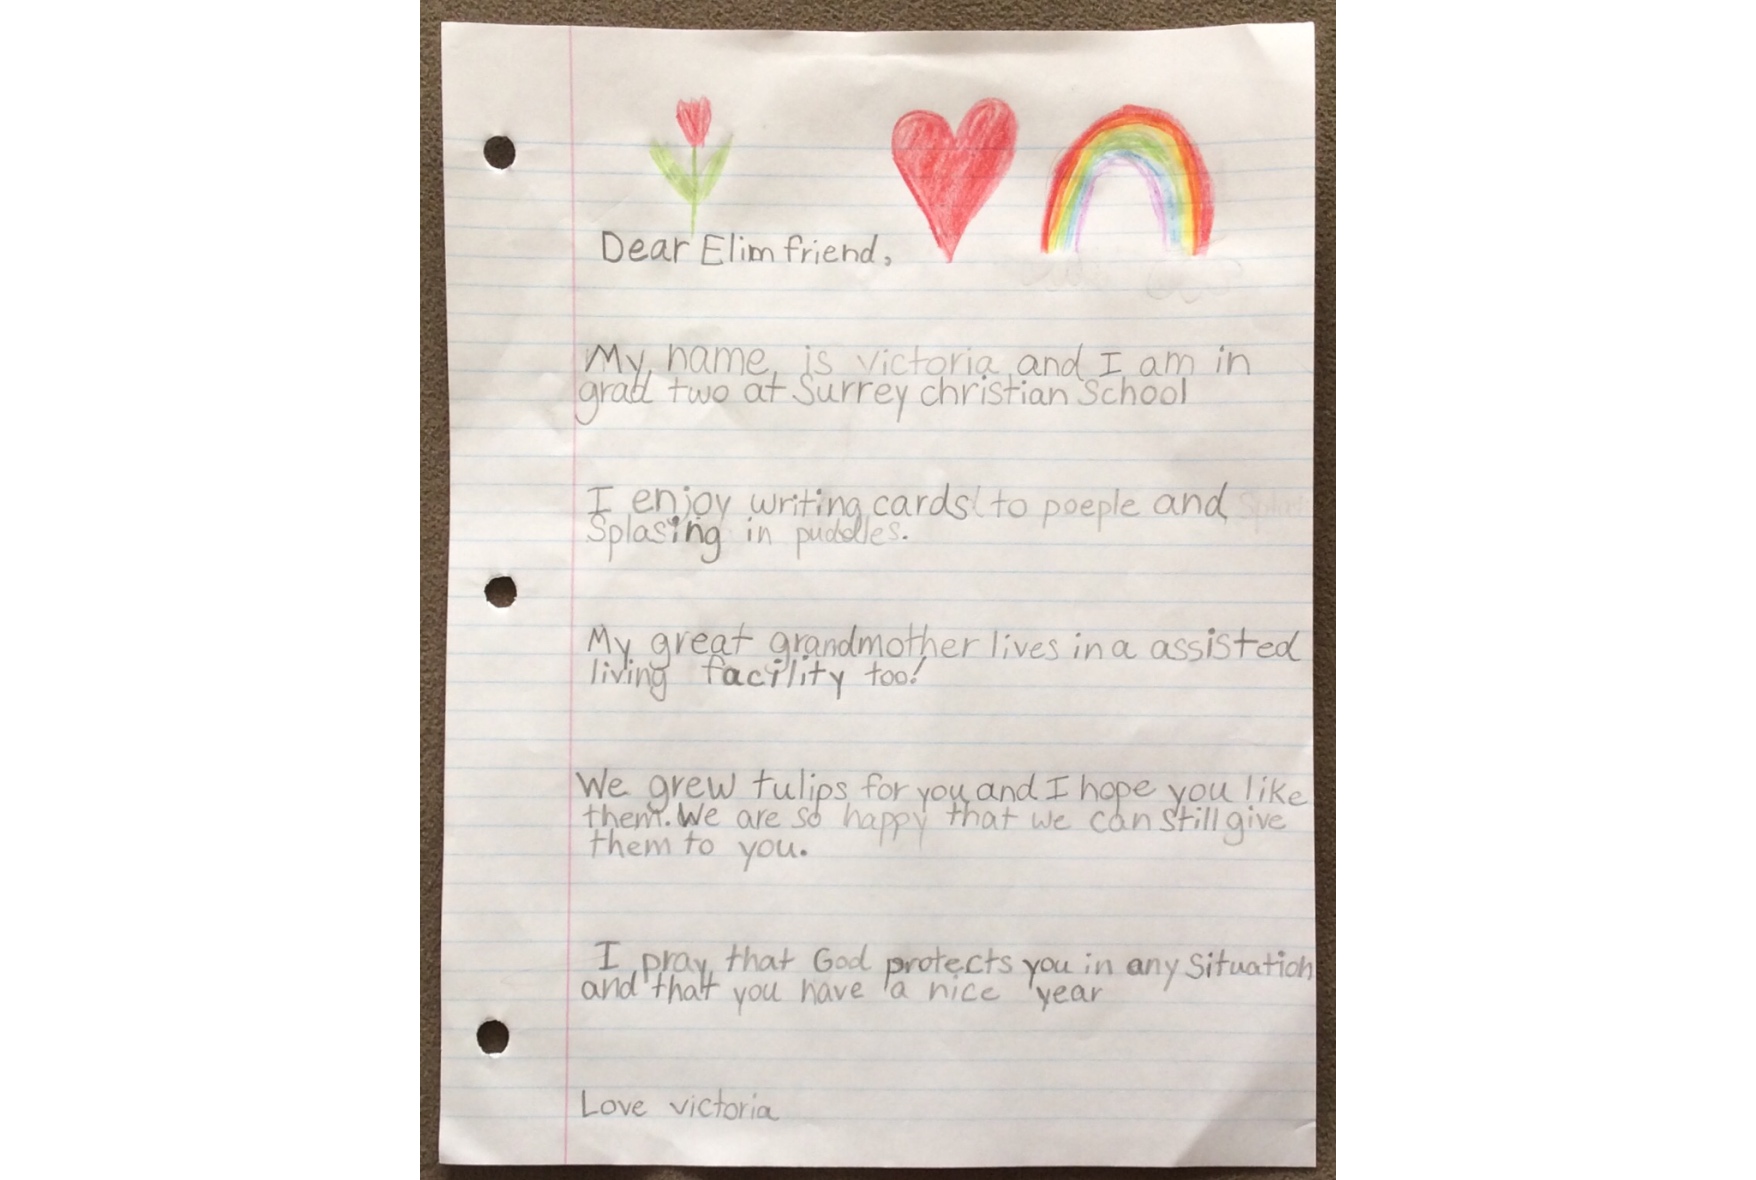 Dear Elim friend,
My name is victoria and I am in
grad two at Surrey christian School
I enjoy writing cards to poeple and
Splasing in puddles.
My great grandmother lives in a assisted
living facility too!
We grew tulips for you and I hope you like
them. We are so happy that we can still give
them to you.
I pray that God protects you in any Situation
and that you have a nice year
Love victoria